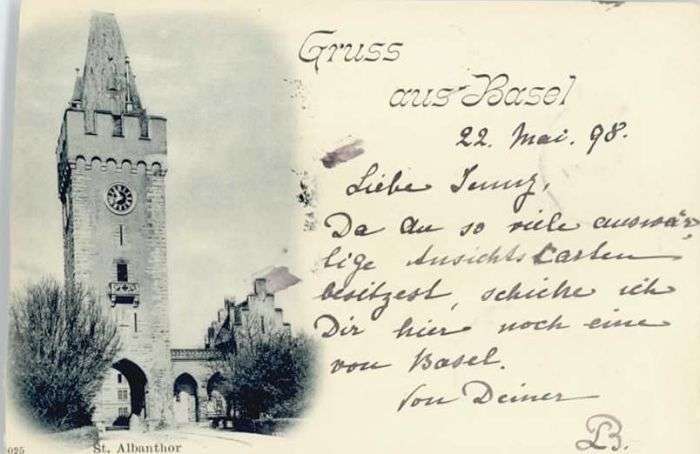 Gruss
aus Basel
22. Mai. 98.
Liebe Jenny,
Da du so viele auswär-
tige Ansichts Karten
besitzest, schicke ich
Dir hier noch eine
von Basel.
Von Deiner
B.
025
St. Albanthor